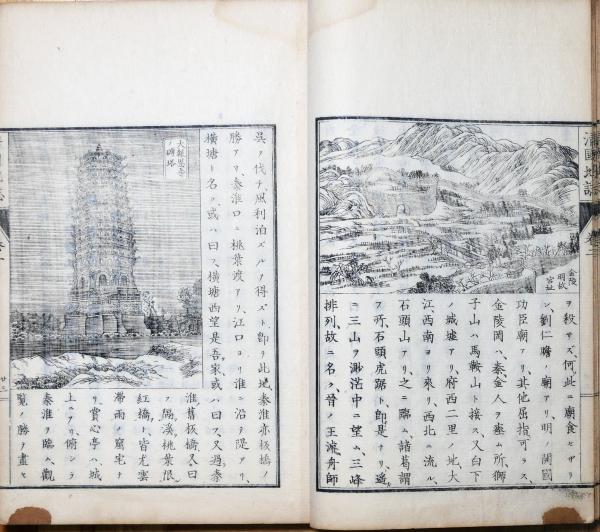 清國地誌
卷二
金陵
明故
宮
ヲ殺サズ、何此ニ廟食セザリ
ン、劉仁瞻ノ廟アリ、明ノ開國
功臣廟アリ、其他屈指可ラス、
金陵岡ハ、秦金人ヲ瘞ム所、獅
子山ハ馬鞍山ト接ス、又白下
ノ城墟アリ、府西二里ノ地大
江西南ヨリ來リ西北ニ流ル、
石頭山アリ、之ニ臨ム、諸葛謂
フ所、石頭虎踞ト、即是ナリ、遙
ニ三山ヲ渺茫中ニ望ム、三峰
排列、故ニ名ク、晉ノ王濬舟師
吳ヲ伐チ、風利泊ズルヲ得ズト、即リ此地、秦淮亦板橋ノ
勝アリ、秦淮口ニ桃葉渡アリ、江口ヨリ淮ニ沿ヲ隄アリ、
横塘ト名ク、或ハ曰ス、横塘西望是吾家或ハ曰ス、又過秦
淮舊板橋、又曰
ス隔溪桃葉限
紅橋ト、皆尤雲
滯雨ノ窟宅ナ
リ、賞心亭ハ、城
上ニアリ、俯シテ
秦淮ヲ臨ム、觀
覽ノ勝ヲ盡セ
大報恩寺
ノ磚塔
廿三